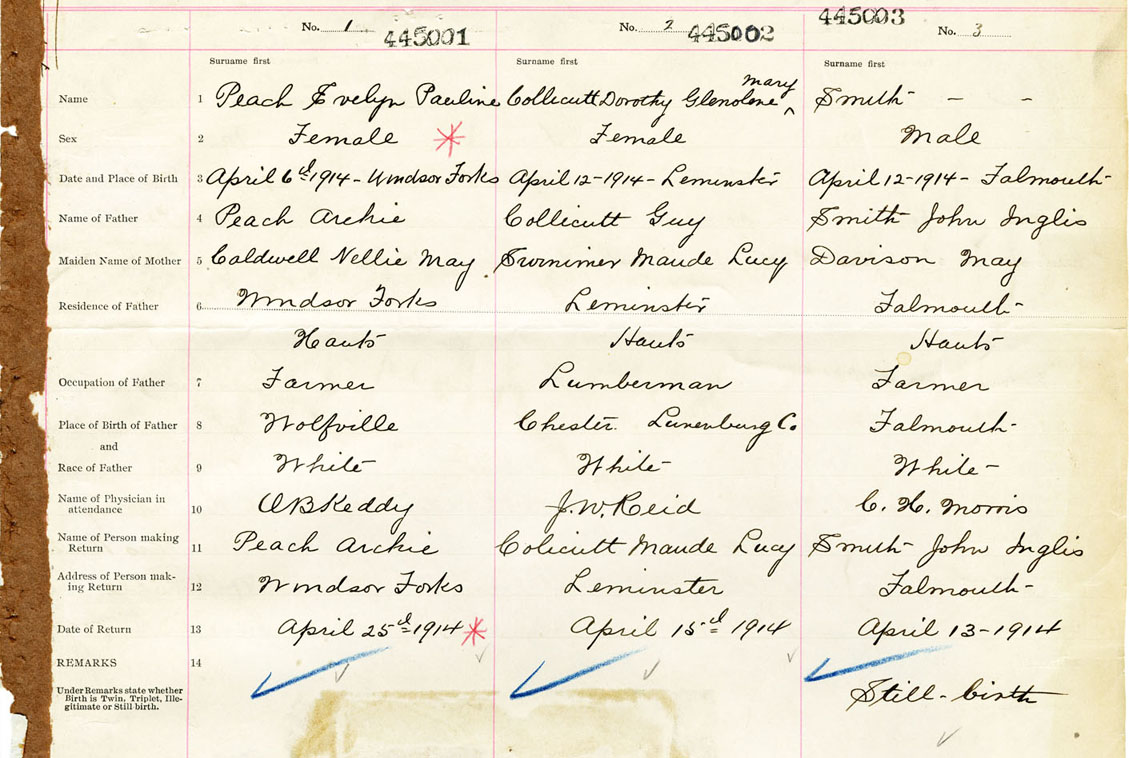 No. 1 445001 No. 2 445002 445003 No. 3
Surname first Surname first Surname first
mary
Name 1 Peach Evelyn Pauline Collicutt Dorothy Glenolene ^ Smith - -
Sex 2 Female * Female Male
Date and Place of Birth 3 April 6th 1914 - Windsor Forks April 12 - 1914 - Leminster April 12 - 1914 - Falmouth
Name of Father 4 Peach Archie Collicutt Guy Smith John Inglis
Maiden Name of Mother 5 Caldwell Nellie May Swinimer Maude Lucy Davison May
Residence of Father 6 Windsor Forks Leminster Falmouth
Hants Hants Hants
Occupation of Father 7 Farmer Lumberman Farmer
Place of Birth of Father 8 Wolfville Chester Lunenburg C. Falmouth
and
Race of Father 9 White White White
Name of Physician in
attendance 10 A B Keddy J. W. Reid C. H. Morris
Name of Person making
Return 11 Peach Archie Colicutt Maude Lucy Smith John Inglis
Address of Person mak-
ing Return 12 Windsor Forks Leminster Falmouth
Date of Return 13 April 25th 1914 * April 15th 1914 April 13 - 1914
REMARKS 14
Under Remarks state whether
Birth is Twin, Triplet, Ille-
gitimate or Still-birth.
Still-birth